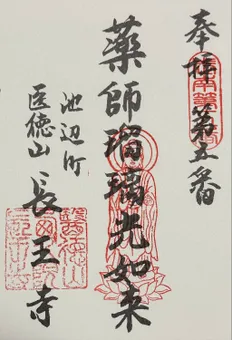 奉拝第五番
薬師瑠璃光如来
池辺町
医徳山長王寺